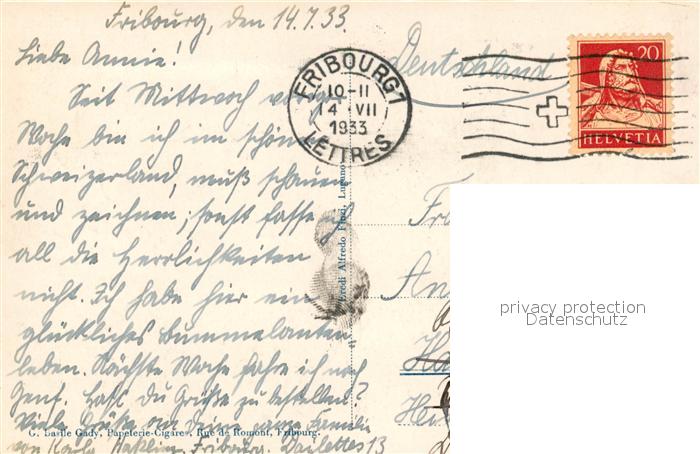 Fribourg, den 14.7.33.
Liebe Annie!
Seit Mittwoch voriger
Woche bin ich im schönen
Schweizerland, muß schauen
und zeichnen, sonst fasse ich
all die Herrlichkeiten
nicht. Ich habe hier ein
glückliches Bummelanten
leben. Nächste Woche fahre ich nach
Genf. Hast du Grüße zu bestellen?
Viele Grüße an Deine ganze Familie
von Karla Fribourg. Daillettes 13
G. Basile Gady, Papeterie-Cigares, Rue de Romont, Fribourg.
Eredi Alfredo Finzi, Lugano
Deutschland
FRIBOURG 1
10-11
14 VII
1933
LETTRES
20
HELVETIA
Fr
An
Ha
Hei
privacy protection
Datenschutz